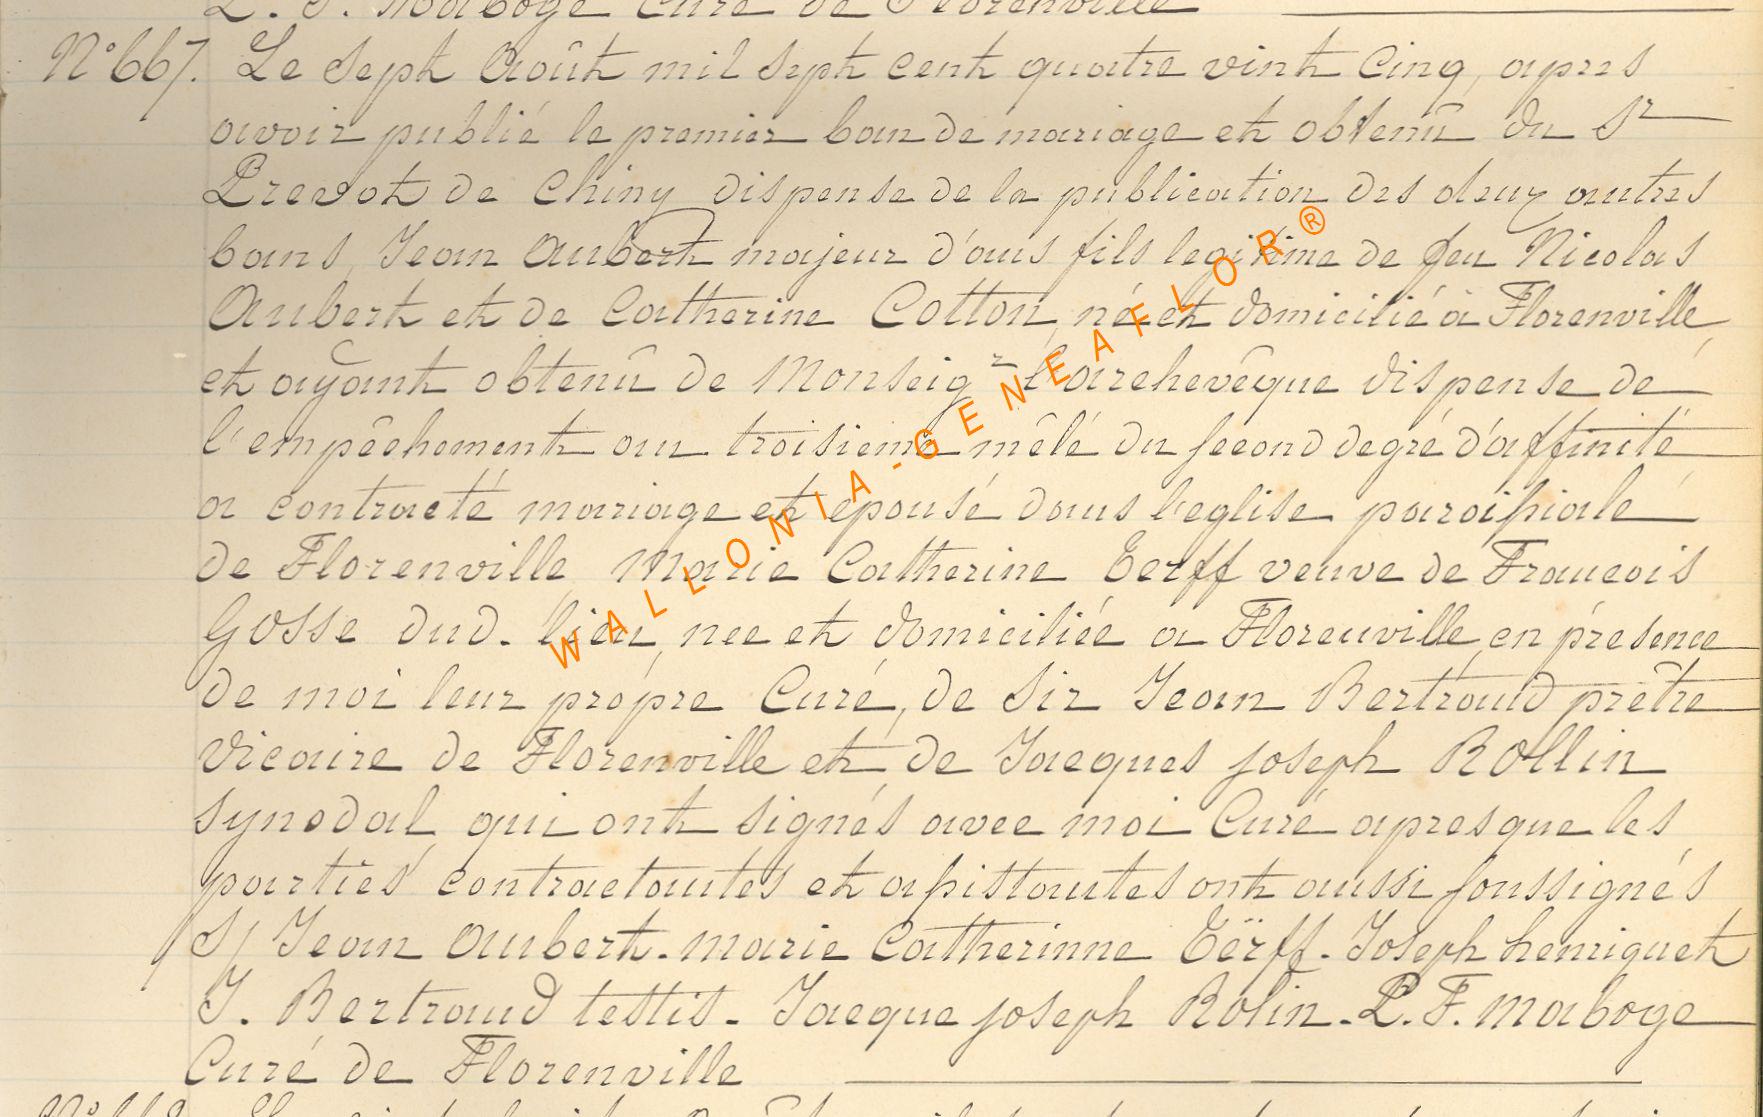 L. F. Maboge Curé de Florenville
N° 667. Le Sept Août mil sept cent quatre vint cinq, apres
avoir publié le premier ban de mariage et obtenû du Sr
Prevot de Chiny dispense de la publication des deux autres
bans, Jean Aubert majeur d'ans fils legitime de feu Nicolas
Aubert et de Catherine Cotton, né et domicilié à Florenville,
et ayant obtenû de Monseigr l'archevêque dispense de
l'empêchement au troisieme mêlé du second degré d'affinité
a contracté mariage et epousé dans l'eglise paroissiale
de Florenville Marie Catherine Eerff veuve de Francois
Gosse dud. lieu, nee et domiciliée a Florenville, en présence
de moi leur propre Curé, de Sir Jean Bertrand prêtre
Vicaire de Florenville et de Jacques joseph Rollin
synodal qui ont signés avec moi Curé apres que les
parties contractantes et assistantes ont aussi soussignés
S/ Jean Aubert. marie Catherinne Eërff. Joseph henriquet
J. Bertrand testis. Jacque joseph Rolin. L. F. Maboge
Curé de Florenville
WALLONIA-GENEAFLOR®